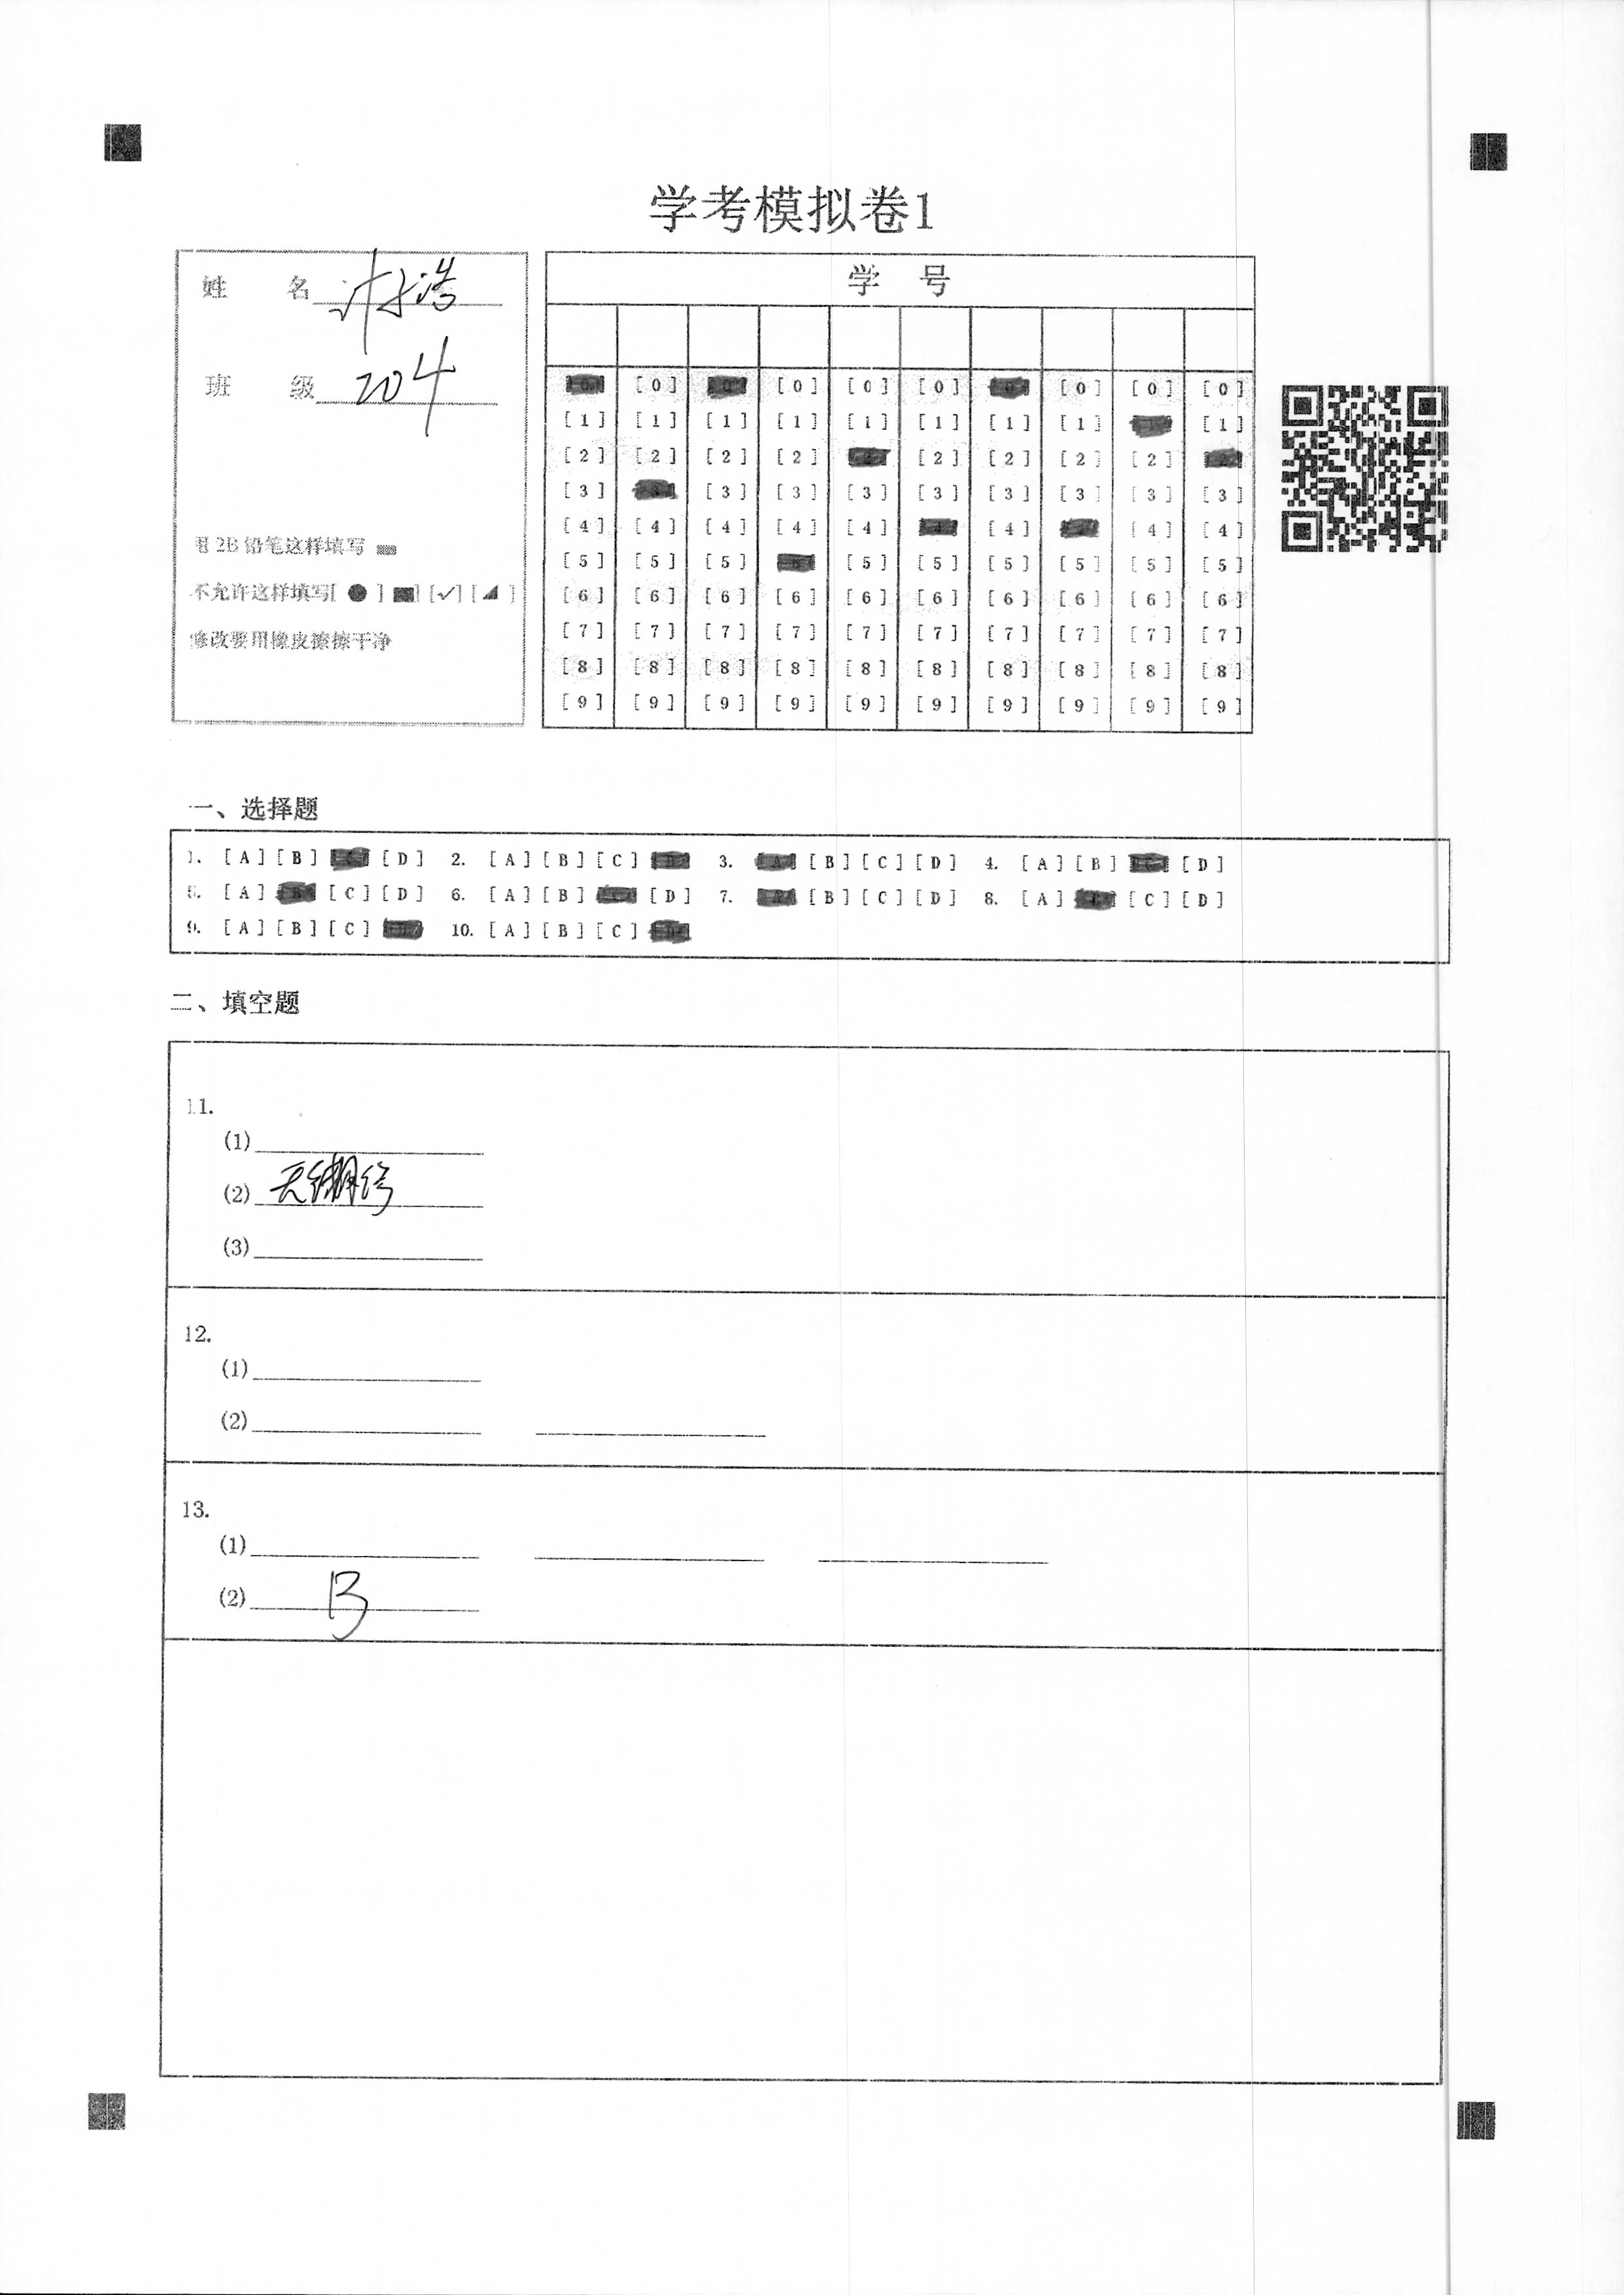 学考模拟卷1
姓 名
班 级 204
用 2B 铅笔这样填写
不允许这样填写[ ● ] [✓] [ ]
修改要用橡皮擦擦干净
学 号
[0] [0] [0] [0] [0] [0] [0] [0] [0] [0]
[1] [1] [1] [1] [1] [1] [1] [1] [1] [1]
[2] [2] [2] [2] [2] [2] [2] [2] [2] [2]
[3] [3] [3] [3] [3] [3] [3] [3] [3]
[4] [4] [4] [4] [4] [4] [4] [4]
[5] [5] [5] [5] [5] [5] [5] [5] [5] [5]
[6] [6] [6] [6] [6] [6] [6] [6] [6] [6]
[7] [7] [7] [7] [7] [7] [7] [7] [7] [7]
[8] [8] [8] [8] [8] [8] [8] [8] [8] [8]
[9] [9] [9] [9] [9] [9] [9] [9] [9] [9]
一、选择题
1. [A] [B] [C] [D] 2. [A] [B] [C] [D] 3. [A] [B] [C] [D] 4. [A] [B] [C] [D]
5. [A] [B] [C] [D] 6. [A] [B] [C] [D] 7. [A] [B] [C] [D] 8. [A] [B] [C] [D]
9. [A] [B] [C] [D] 10. [A] [B] [C] [D]
二、填空题
11.
(1)
(2)
(3)
12.
(1)
(2)
13.
(1)
(2) B